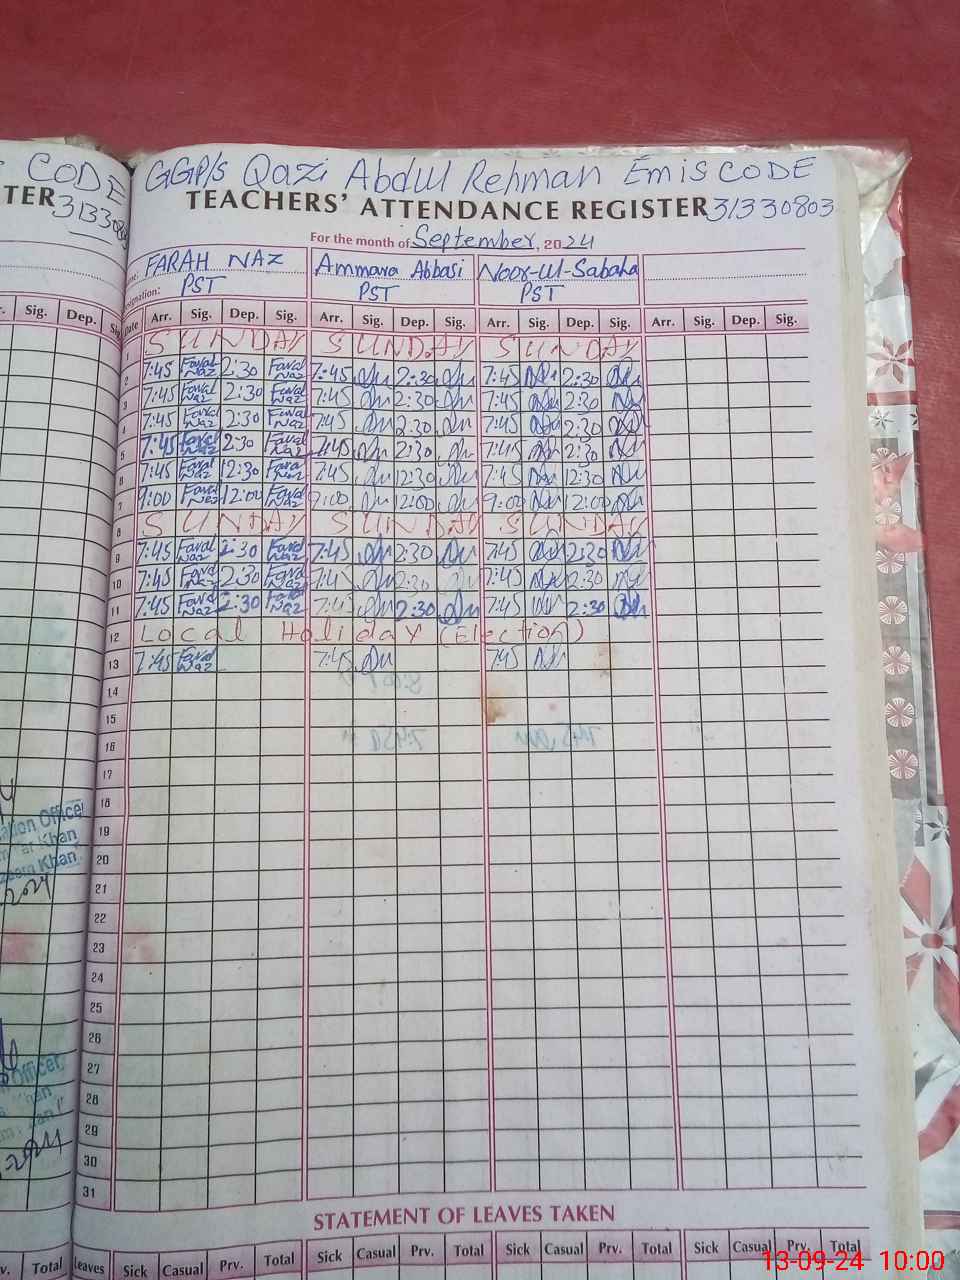 CODE
GGP/s Qazi Abdul Rehman Emis CODE
TER 31330803
TEACHERS' ATTENDANCE REGISTER 31330803
For the month of September, 2024
FARAH NAZ Ammara Abbasi Noor-ul-Sabaha
PST PST PST
Sig. Dep. Sig. Date Arr. Sig. Dep. Sig. Arr. Sig. Dep. Sig. Arr. Sig. Dep. Sig. Arr. Sig. Dep. Sig.
1 SUNDAY SUNDAY SUNDAY
2 7:45 Farah Naz 2:30 Farah Naz 7:45 2:30 7:45 2:30
3 7:45 Farah Naz 2:30 Farah Naz 7:45 2:30 7:45 2:30
4 7:45 Farah Naz 2:30 Farah Naz 7:45 2:30 7:45 2:30
5 7:45 Farah Naz 2:30 Farah Naz 7:45 2:30 7:45 2:30
6 7:45 Farah Naz 12:30 Farah Naz 7:45 12:30 7:45 12:30
7 9:00 Farah Naz 12:00 Farah Naz 9:00 12:00 9:00 12:00
8 SUNDAY SUNDAY SUNDAY
9 7:45 Farah Naz 2:30 Farah Naz 7:45 2:30 7:45 2:30
10 7:45 Farah Naz 2:30 Farah Naz 7:45 2:30 7:45 2:30
11 7:45 Farah Naz 2:30 Farah Naz 7:45 2:30 7:45 2:30
12 Local Holiday (Election)
13 7:45 Farah Naz 7:45 7:45
14
15
16
17
18
19
20
21
22
23
24
25
26
27
28
29
30
31
Officer
Khan
Khan
2024
Officer
Khan
STATEMENT OF LEAVES TAKEN
Total Leaves Sick Casual Prv. Total Sick Casual Prv. Total Sick Casual Prv. Total Sick Casual Prv. Total
13-09-24 10:00